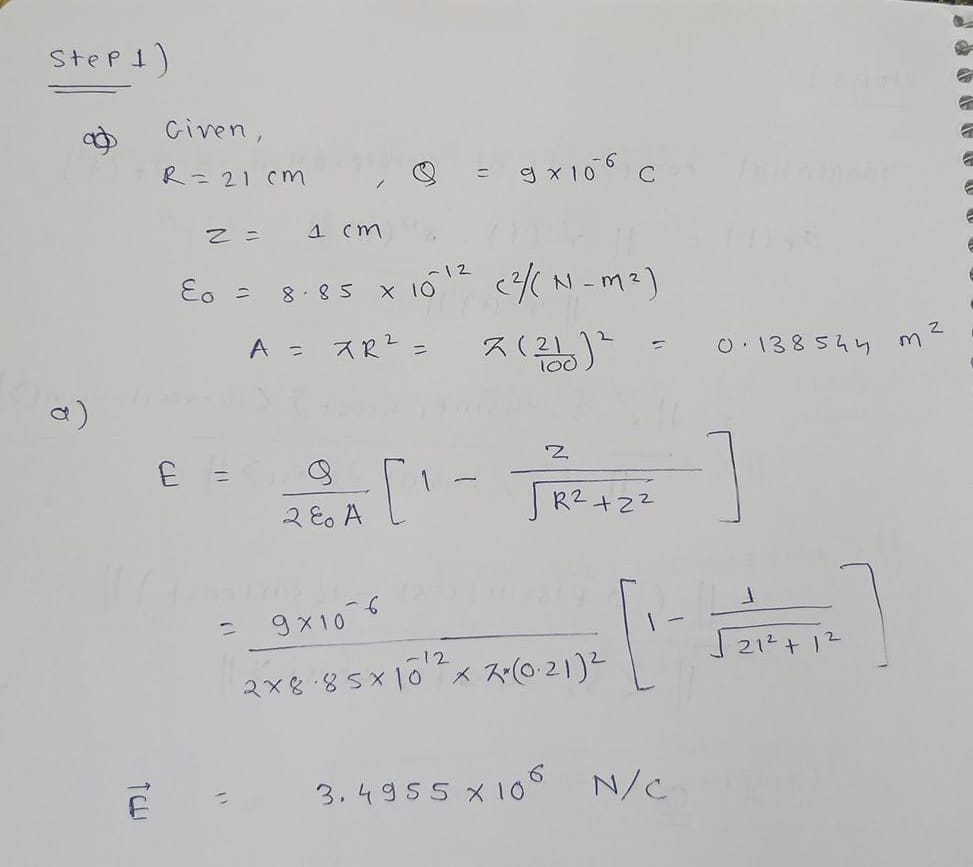 Step 1)
Given,
R = 21 cm , Q = 9 × 10⁻⁶ C
z = 1 cm
ε₀ = 8.85 × 10⁻¹² C²/(N-m²)
A = πR² = π(21/100)² = 0.138544 m²
a)
E = Q/(2ε₀A) [1 - z/√(R²+z²)]
= 9×10⁻⁶/(2×8.85×10⁻¹² × π×(0.21)²) [1 - 1/√(21²+1²)]
E⃗ = 3.4955 × 10⁶ N/C